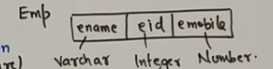 Emp
ename eid emobile
n
re) Varchar Integer Number.